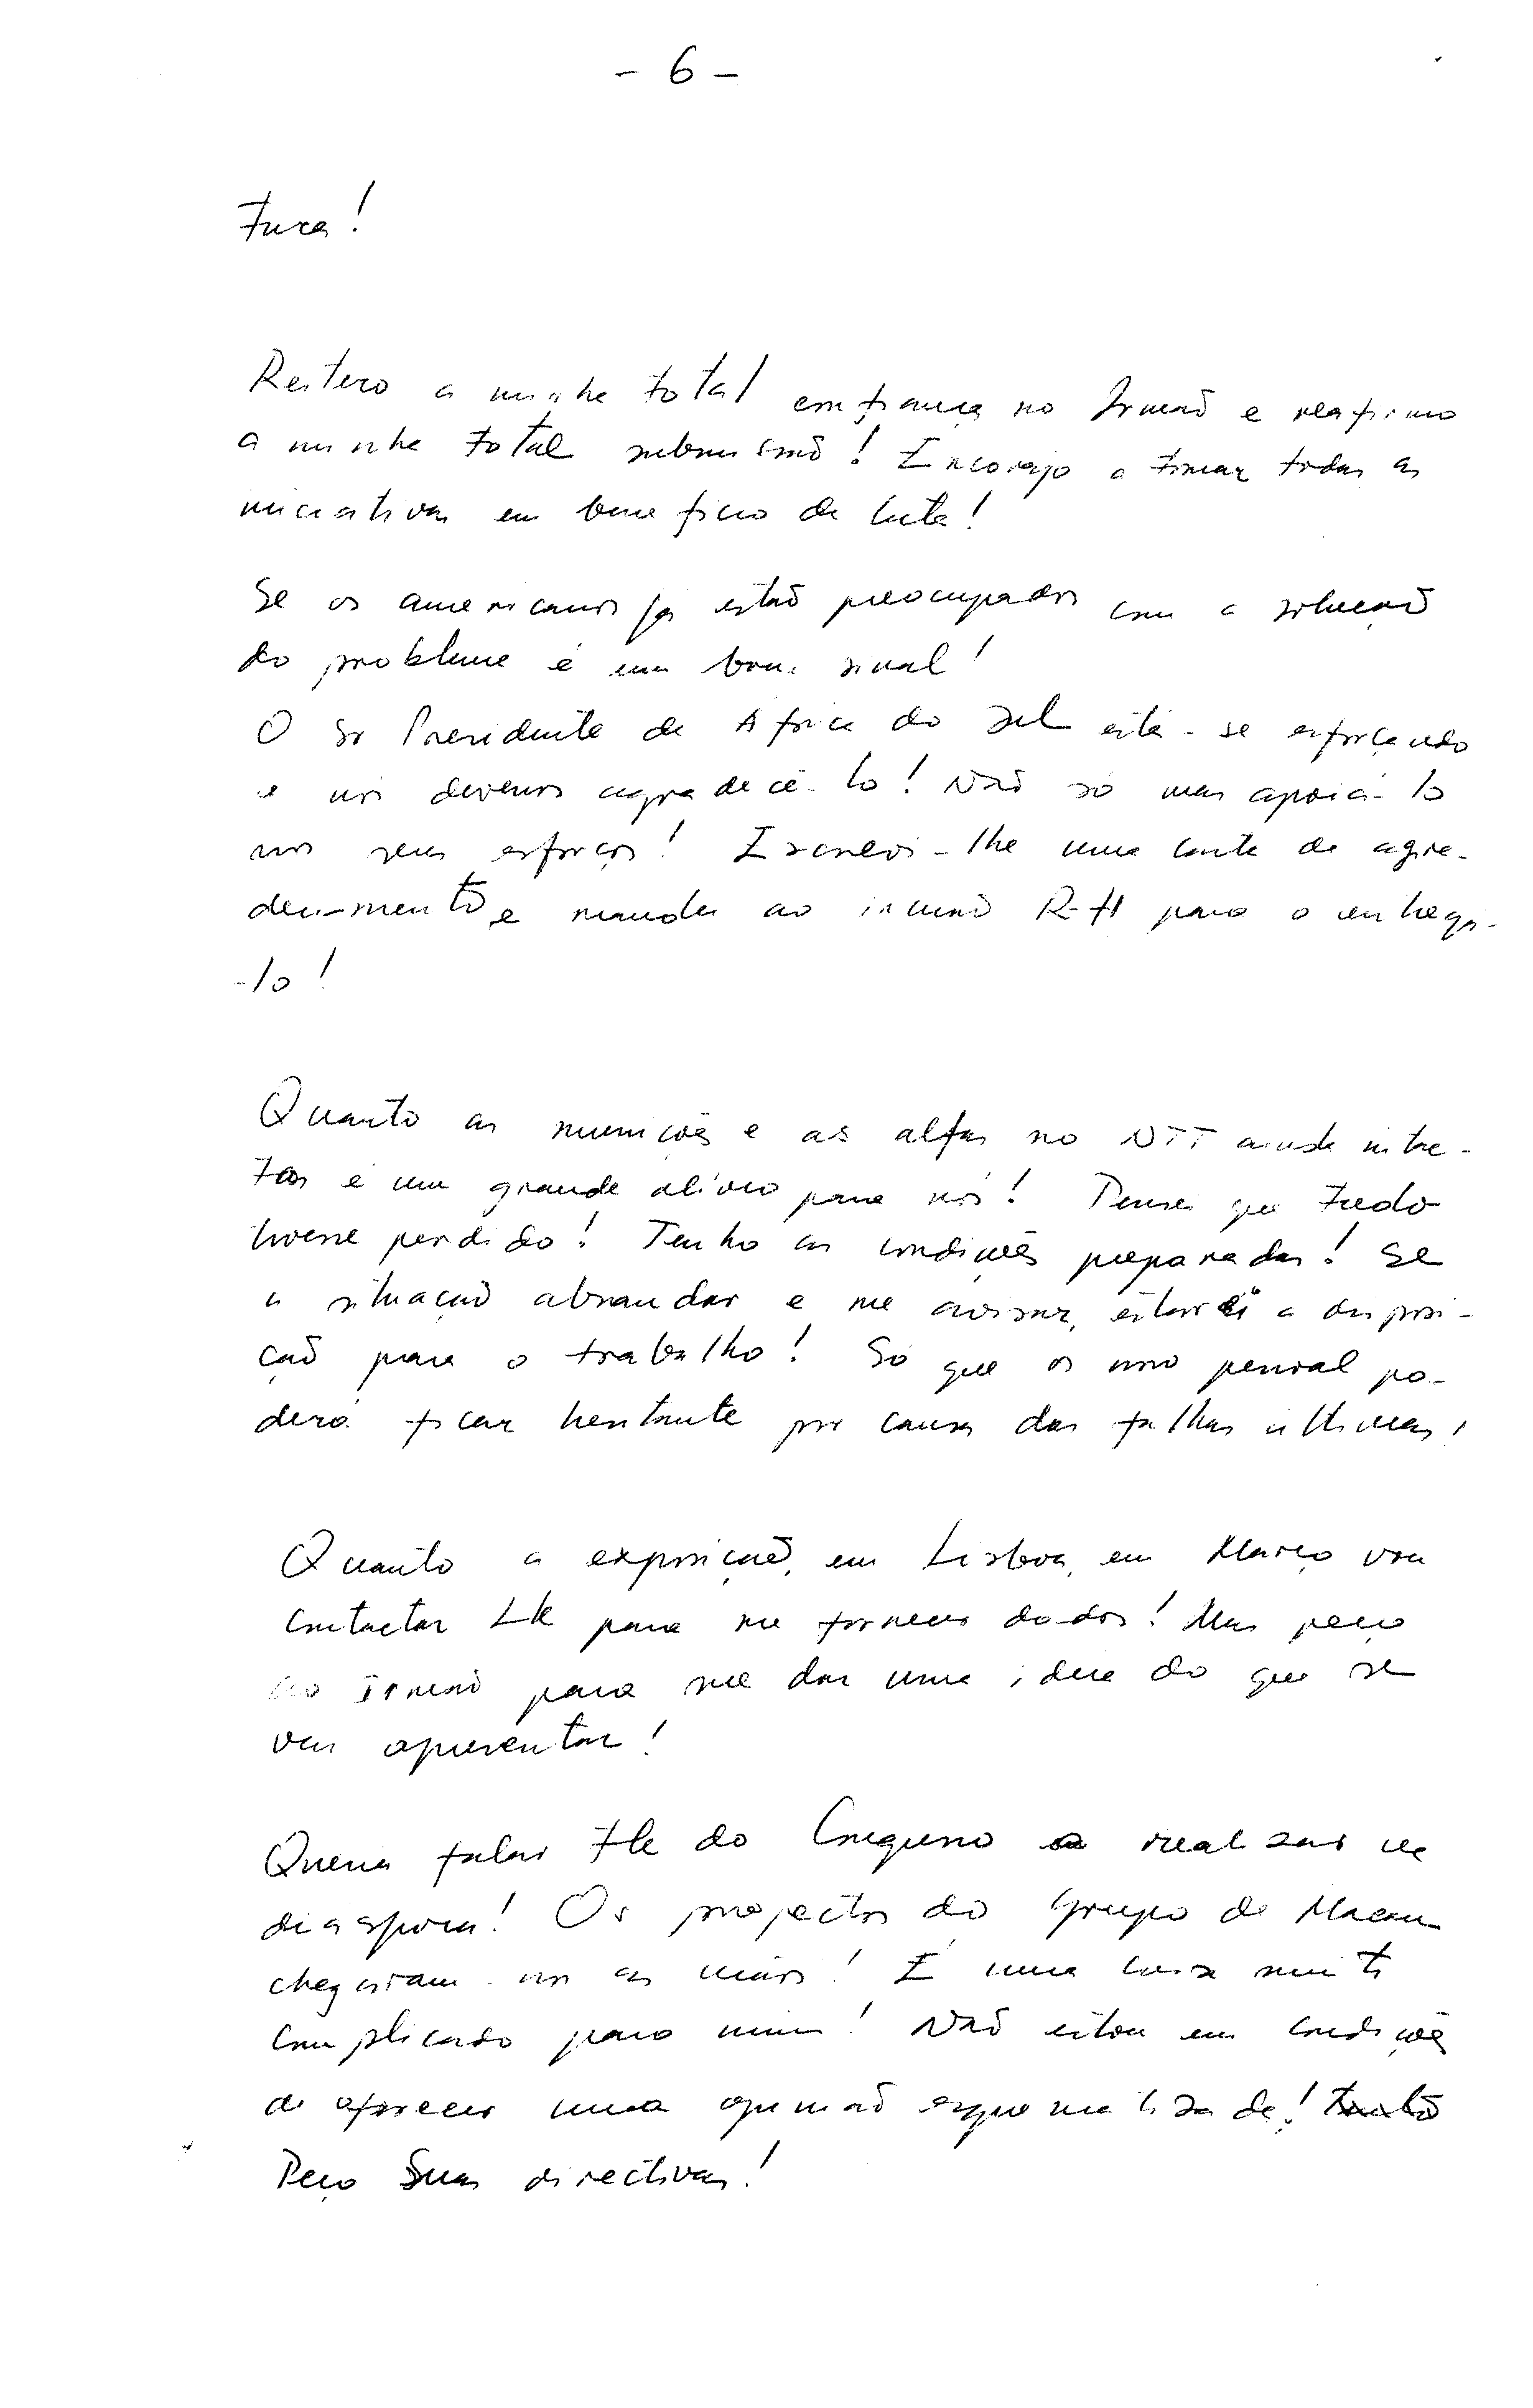 - 6 -
Reitero a minha total confiança no Irmão e reafirmo
a minha total submissão! Encorajo a tomar todas as
iniciativas em beneficio da luta!
Se os americanos já estão preocupados com a solução
do problema é um bom sinal!
O Sr Presidente da Africa do Sul está-se esforçando
e nós devemos agradecê-lo! Não só mas apoiá-lo
nos seus esforços! Escrevi-lhe uma carta de agra-
decimento e mandei ao irmão R-H para o entregá-
-lo!
Quanto as munições e as alfas no NTT ainda intac-
tas é um grande alívio para nós! Pensei que tudo
tivesse perdido! Tenho as condições preparadas! Se
a situação abrandar e me avisar, estarei a disposi-
ção para o trabalho! Só que os nno pensal po-
derá ficar hesitante por causa das falhas ultimas!
Quanto a exposição, em Lisboa, em Março vou
contactar LK para me fornecer dados! Mas peço
ao irmão para me dar uma ideia do que se
vai apresentar!
Queria falar do Congresso a realizar na
diaspora! Os projectos do grupo de Macau
chegaram-nos as mãos! É uma coisa muito
complicado para mim! Não estou em condições
de oferecer uma opinião esquematizada!
Peço Suas directivas!